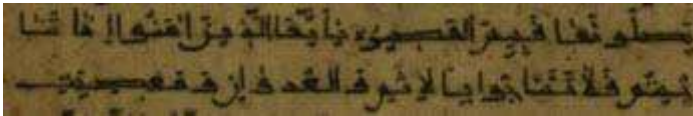 يصلونها فبيس المصير يايها الذين امنوا اذا تنا
جيتم فلا تتناجوا بالاثم و العدون و معصيت